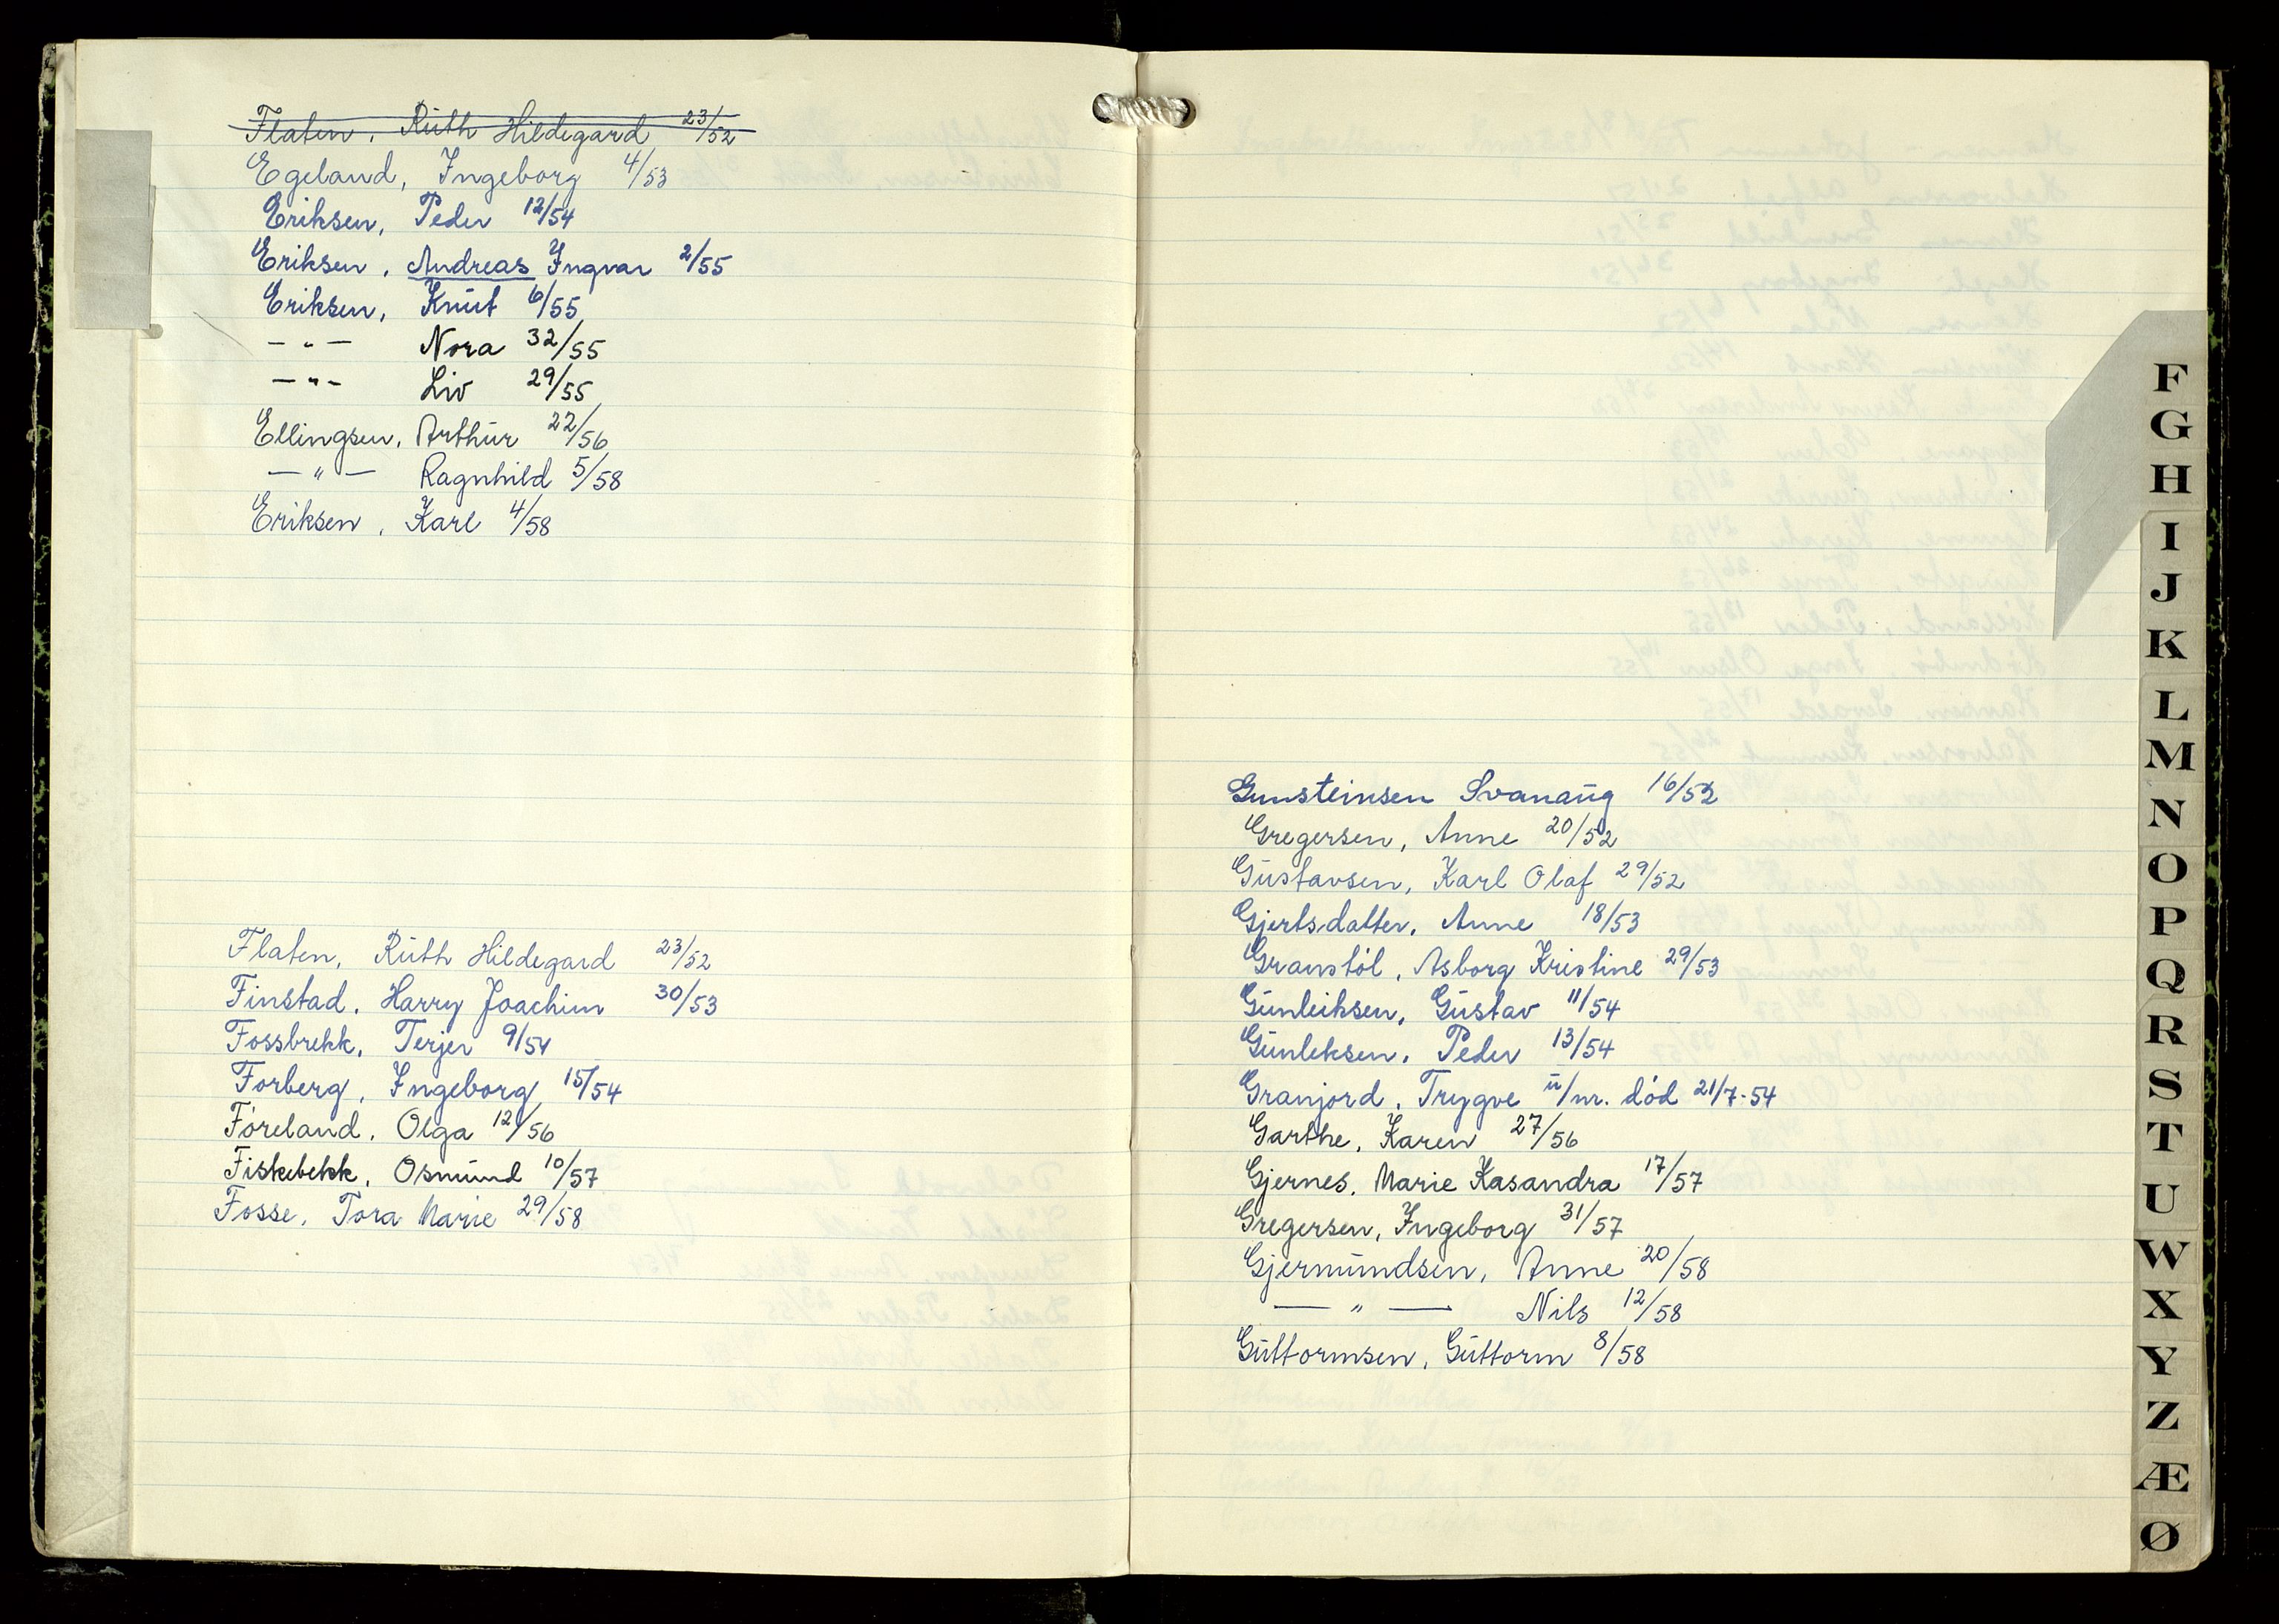 Flaten, Ruth Hildegard 23/52
Egeland, Ingeborg 4/53
Eriksen, Peder 12/54
Eriksen, Andreas Ingvar 2/55
Eriksen, Knut 6/55
— " — Nora 32/55
— " — Liv 29/55
Ellingsen, Arthur 22/56
— " — Ragnhild 5/58
Eriksen, Karl 4/58
Flaten, Ruth Hildegard 23/52
Finstad, Harry Joachim 30/53
Fossbrekk, Terjer 9/54
Forberg, Ingeborg 15/54
Föreland, Olga 12/56
Fiskebekk, Osmund 10/57
Fosse, Tora Marie 29/58
Gunsteinsen Svanaug 16/52
Gregersen, Anne 20/52
Gustavsen, Karl Olaf 29/52
Gjertsdatter, Anne 18/53
Granstöl, Asborg Kristine 29/53
Gunleiksen, Gustav 11/54
Gunleksen, Peder 13/54
Granjord, Trygve u/nr. död 21/7-54
Garthe, Karen 27/56
Gjernes, Marie Kasandra 17/57
Gregersen, Ingeborg 31/57
Gjermundsen, Anne 20/58
— " — Nils 12/58
Guttormsen, Guttorm 8/58
F
G
H
I
J
K
L
M
N
O
P
Q
R
S
T
U
W
X
Y
Z
Æ
Ø